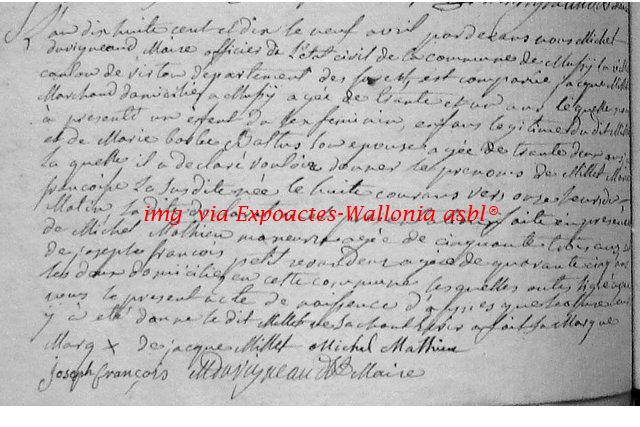 L'an dix huite cent et dix le neuf avril par devans nous Michel
duvigneaud Maire officier de L'etat civil de la commune de Mussy la ville
canton de virton departement des forest, est comparu jacque Millet
Marchand domicilié a Mussy agée de trante et un ans lequelle nous
a presenté un enfent du sex feminain, enfans legitime du dit Millet
et de Marie barbe son epouse agée de trente deux ans
la quelle il a declaré vouloir donner les prenoms de Millet Marie
francoise La susdite nee le huite courans vers onze heures du
Matin faite en presence
de Michel Mathieu maneuvre agée de cinquante trois ans et
de joseph francois petit agée de quarante cinq ans
les deux domicilies en cette commune lesquelles ontes signé avec
nous le present acte de naissence d'apres que lecture leur
y à eté donné le dit Millet ne sachant ecrir a fait sa Marque
Marq x de jacque Millet Michel Mathieu
joseph françois MDuvigneaud Maire
img via Expoactes-Wallonia asbl©